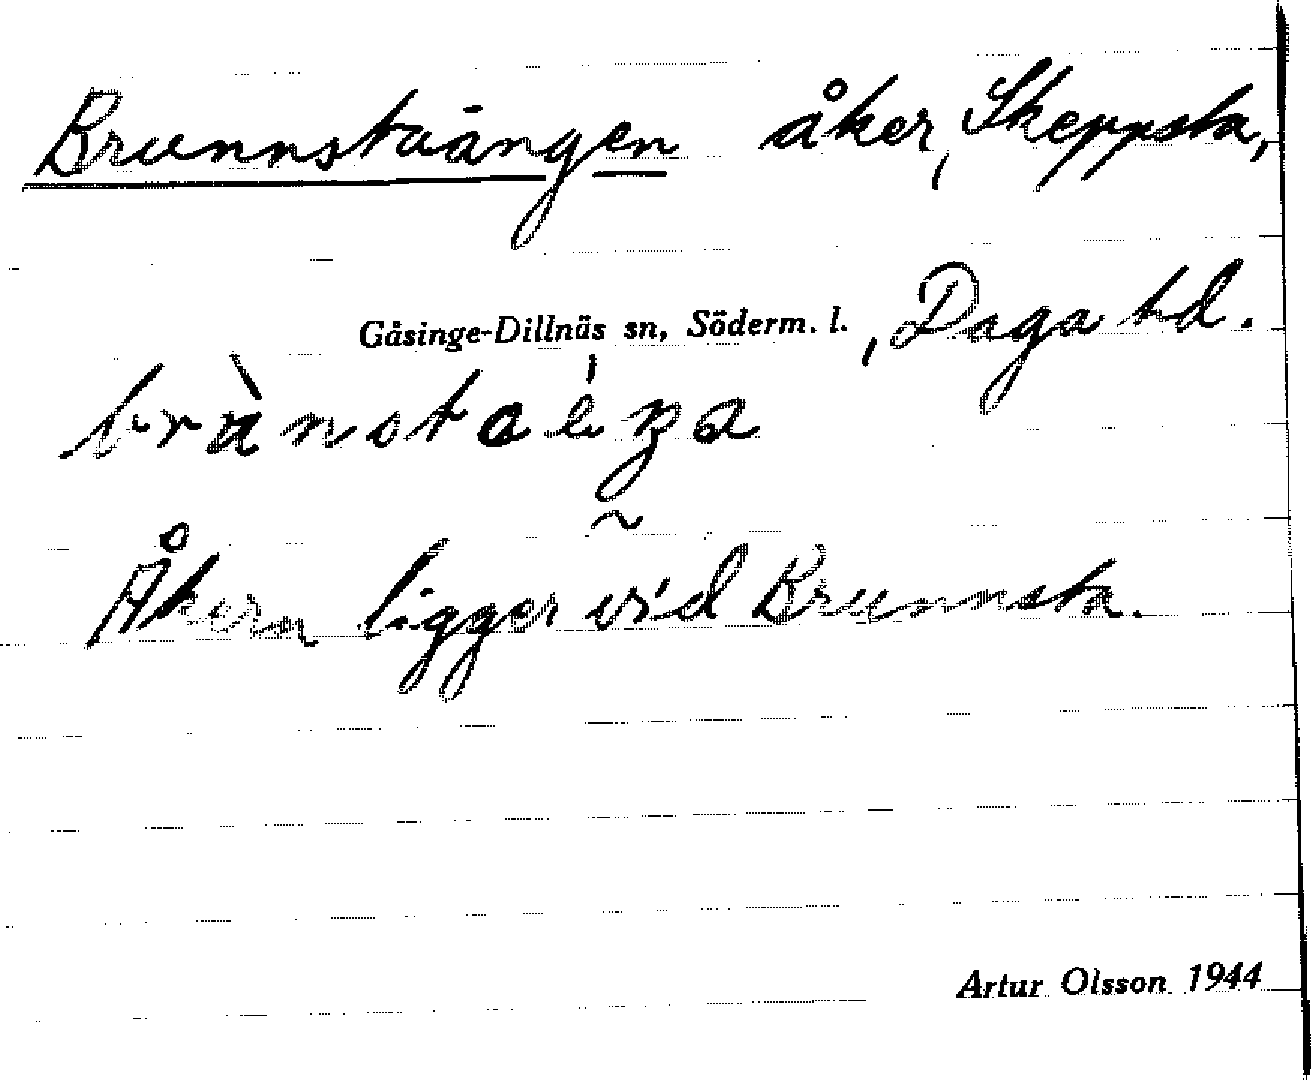 Brunnstaängen åker, Skeppsta,
Gåsinge-Dillnäs sn, Söderm. l., Daga hd.
Åkern ligger vid Brunnsta.
Artur Olsson 1944